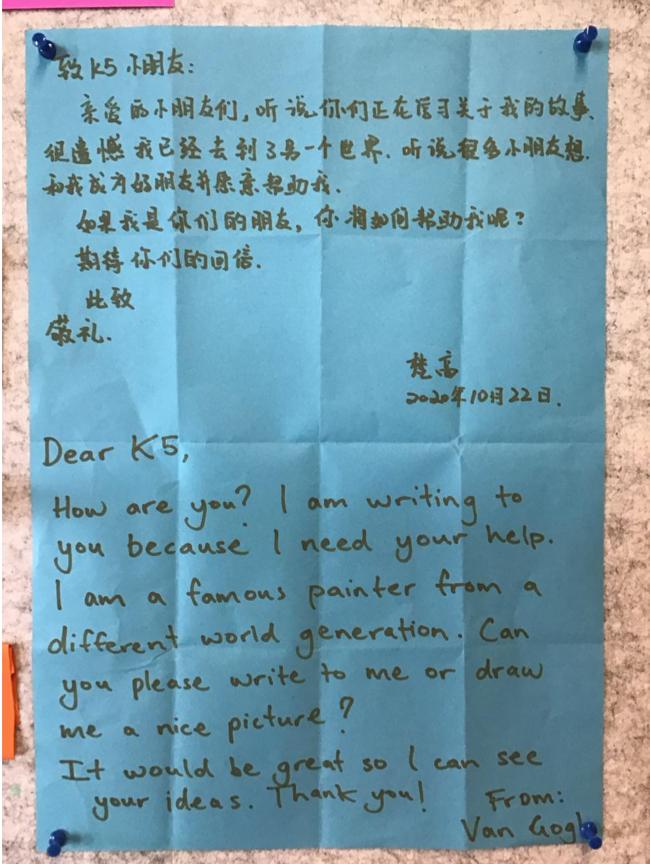 致K5小朋友:
亲爱的小朋友们,听说你们正在学习关于我的故事、
很遗憾我已经去到了另一个世界.听说很多小朋友想.
和我成为好朋友并愿意帮助我.
如果我是你们的朋友,你将如何帮助我呢?
期待你们的回信.
此致
敬礼.
梵高
2020年10月22日.
Dear K5,
How are you? I am writing to
you because I need your help.
I am a famous painter from a
different world generation. Can
you please write to me or draw
me a nice picture?
It would be great so I can see
your ideas. Thank you!
From:
Van Gogh